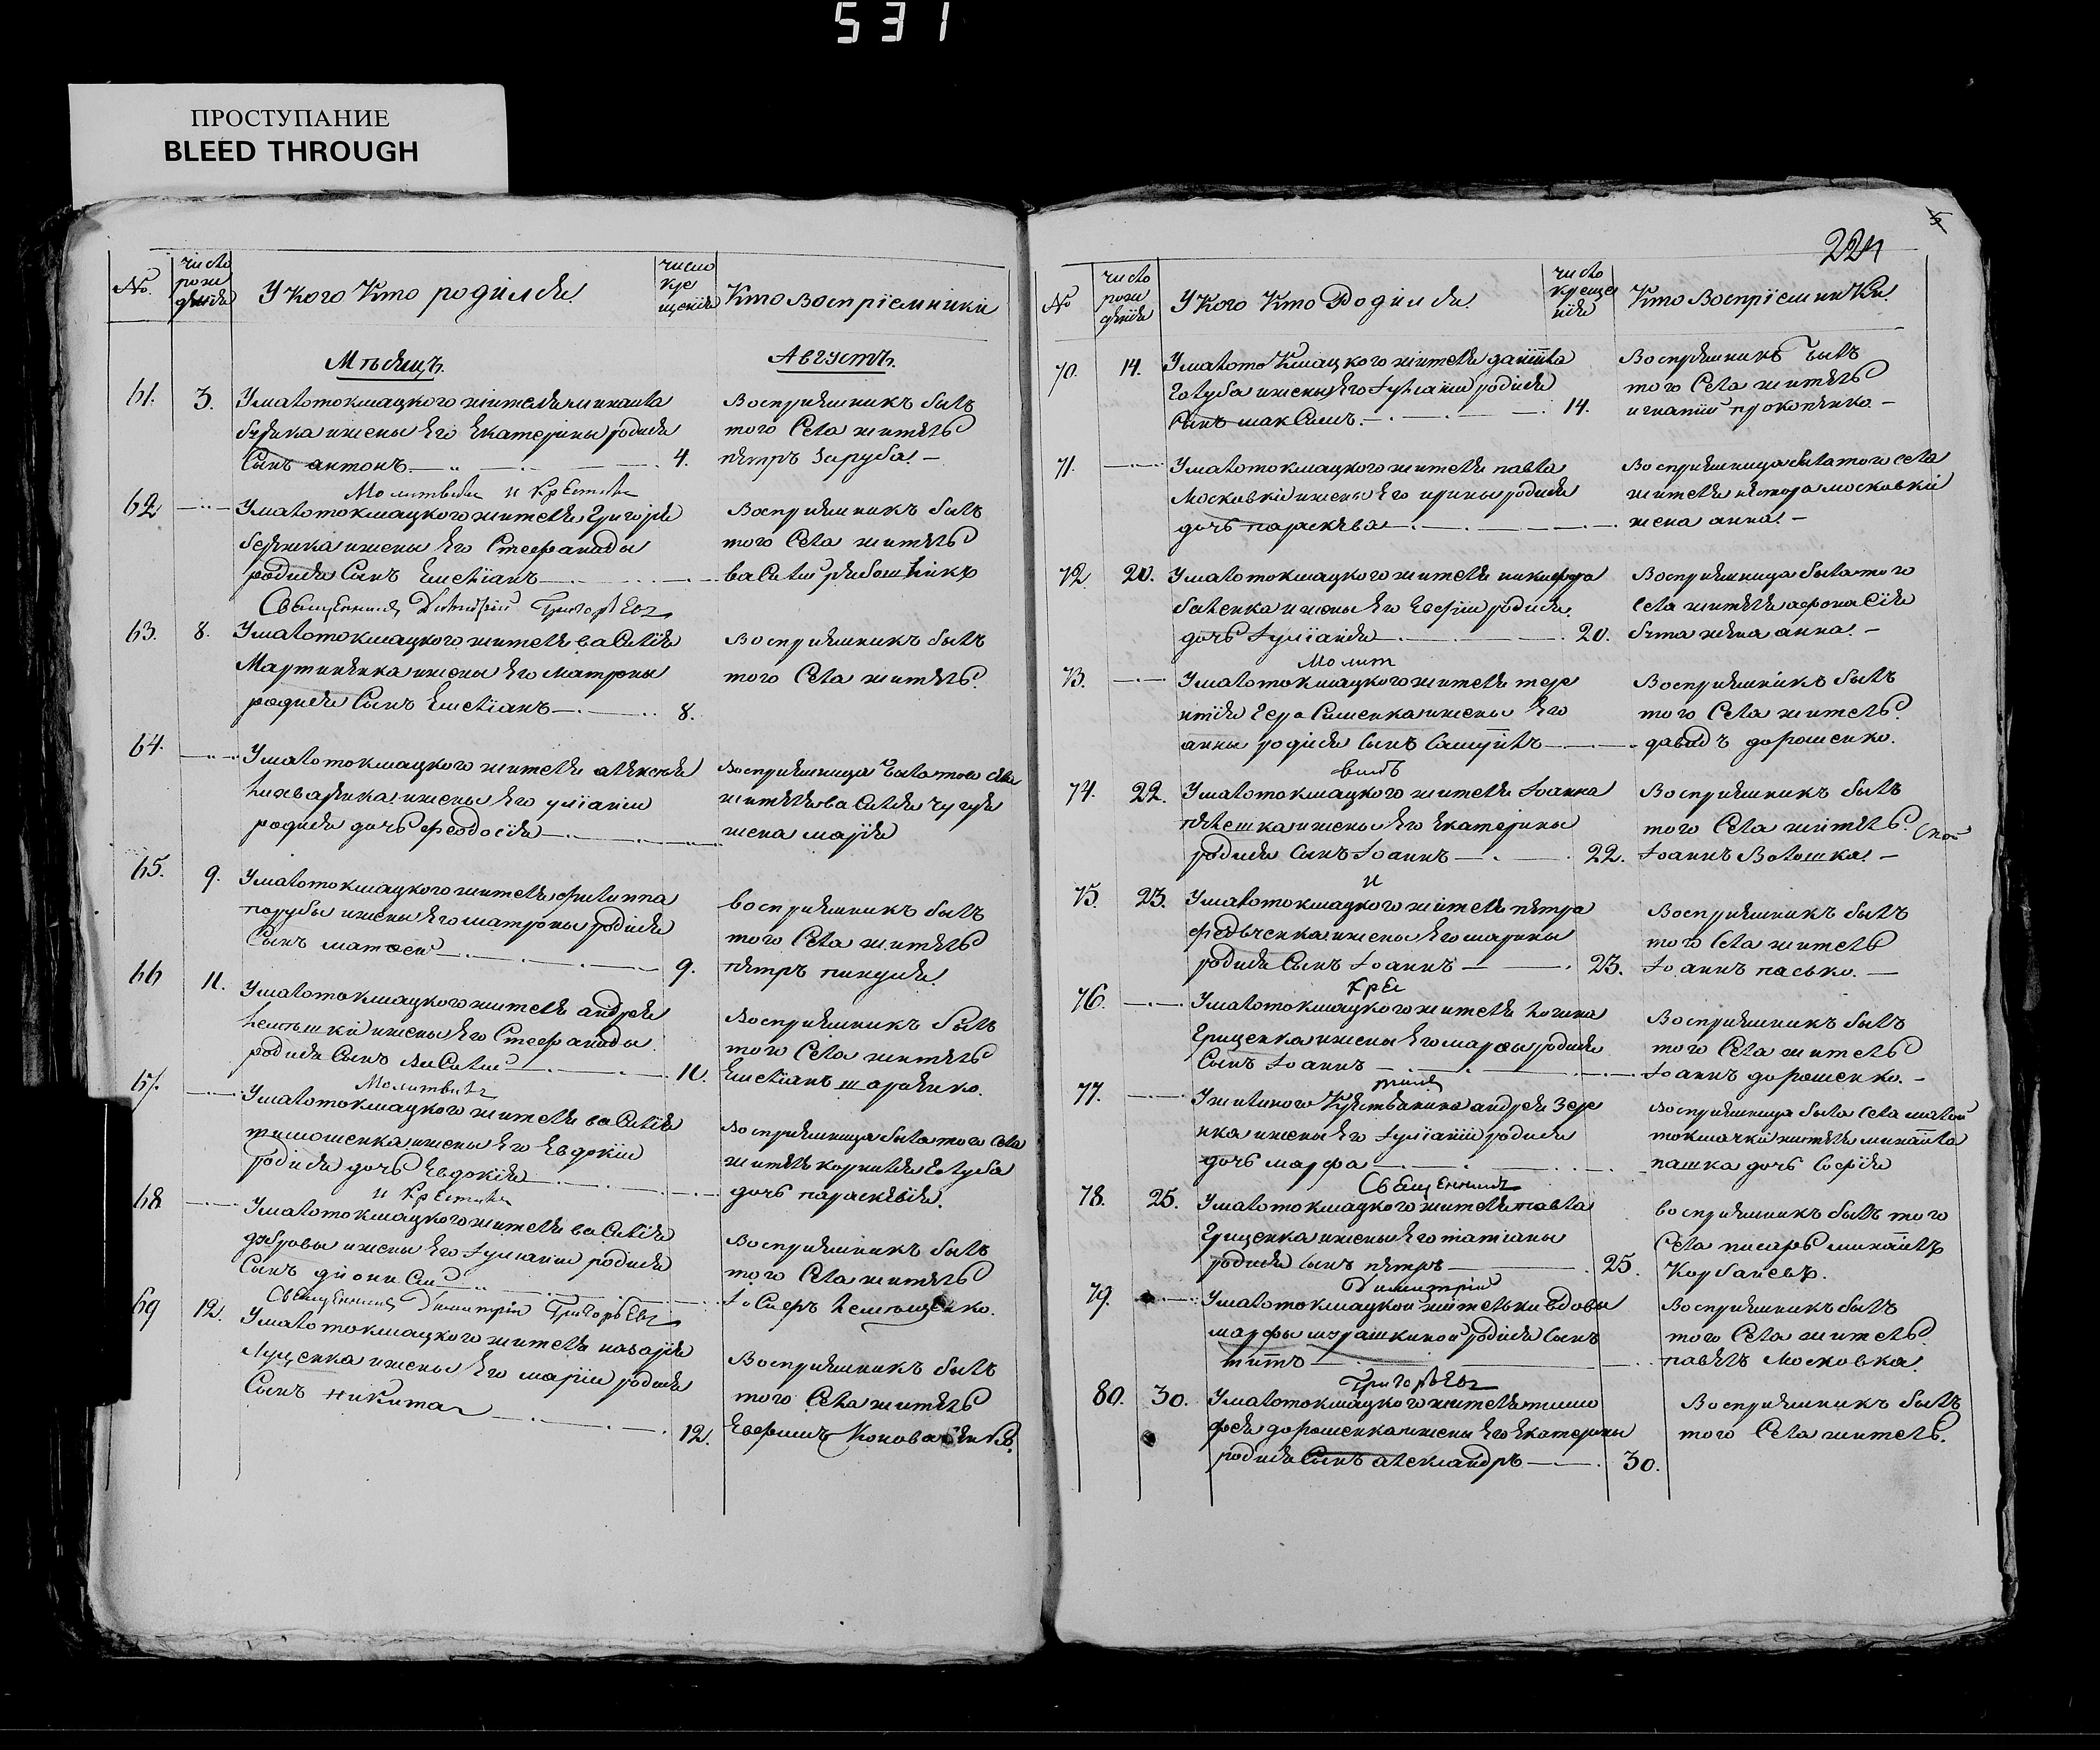 531
ПРОСТУПАНИЕ
BLEED THROUGH
№. число рождения У Кого Кто родился число крещения Кто Воспріемники
Мѣсяцъ. Августъ.
61. 3. Умалотокмацкого жителя михаила
жены Его Екатерины родися
Сынъ антонъ 4.
Восприемникъ былъ
того Села житель
петръ заруба.
Молитвилъ и Крестилъ
62 Умалотокмацкого жителя Григорія
жены Его Стефаниды
родися Сынъ Емеліанъ
Восприемникъ былъ
того Села житель
василий
Священникъ Димитрій Григорьевъ
63. 8. Умалотокмацкого жителя василія
Мартиненка жены Его матроны
родися Сынъ Емеліанъ 8.
Восприемникъ былъ
того Села житель.
64. Умалотокмацкого жителя алексея
жены Его уліании
родися дочь феодосія
Восприемница была того села
жителя василия
жена марія
65. 9. Умалотокмацкого жителя филиппа
порубы жены Его матроны родися
Сынъ матвей 9.
восприемникъ былъ
того Села житель
петръ
66 11. Умалотокмацкого жителя андрея
жены Его Стефаниды
родися Сынъ василий 11.
Восприемникъ былъ
того Села житель
Емеліанъ
Молитвилъ
67. Умалотокмацкого жителя василія
тимошенка жены Его Евдокіи
родися дочь Евдокія
Восприемница была того Села
жителя корнилия голуба
дочь параскевия.
и Крестилъ
68 Умалотокмацкого жителя василія
жены Его Іулиании родися
Сынъ дионисий
Восприемникъ былъ
того Села житель
Іосифъ
Священникъ Димитрій Григорьевъ
69 12. Умалотокмацкого жителя назарія
Луценка жены Его маріи родися
Сынъ никита 12.
Восприемникъ былъ
того Села житель
Ефимъ Коноваленко.
224
№ число рождения У Кого Кто Родился число крещения Кто Воспріемники.
70. 14. Умалото Кмацкого жителя даніила
Голуба жены Его Іуліании родися
Сынъ максимъ. 14.
Восприемникъ былъ
того Села житель
игнатий прокопенко.
71. Умалотокмацкого жителя павла
Московкы жены Его ирины родися
дочь параскева
Восприемница была того села
жителя нестора московки
жена анна.
72 20. Умалотокмацкого жителя никифора
жены Его Евфимии родися
дочь Іуліания 20.
Восприемница была того
села жителя афонасія
жена анна.
Молит
73. Умалотокмацкого жителя терентія
Герасименка жены Его
анны родися сынъ самуилъ
Восприемникъ былъ
того Села житель.
давидъ дорошенко.
вилъ
74. 22. Умалотокмацкого жителя Іоанна
жены Его Екатерины
родися сынъ Іоаннъ 22.
Восприемникъ былъ
того Села житель.
Іоаннъ Волошка.
и
75. 23. Умалотокмацкого жителя петра
федченка жены Его марины
родися Сынъ Іоаннъ 23.
Восприемникъ былъ
того Села житель
Іоаннъ пасько.
Кре
76. Умалотокмацкого жителя логина
Гриценка жены Его марфы родися
Сынъ Іоаннъ
Восприемникъ былъ
того Села житель
Іоаннъ дорошенко.
стилъ
77. андрея
жены Его Іуліании родися
дочь марфа
Восприемница была села малой
токмачки жителя михаила
пашка дочь софія
Священникъ
78. 25. Умалотокмацкого жителя павла
Гриценка жены Его татіаны
родися сынъ петръ 25.
восприемникъ былъ того
Села писарь михаилъ
Корбаневъ.
Димитрій
79. Умалотокмацкой жительки вдовы
марфы мурашкиной родися сынъ
титъ
Восприемникъ былъ
того Села житель
павелъ Московка.
Григорьевъ
80. 30. Умалотокмацкого жителя тимофея
дорошенка жены Его Екатерины
родися Сынъ александръ 30.
Восприемникъ былъ
того Села житель.